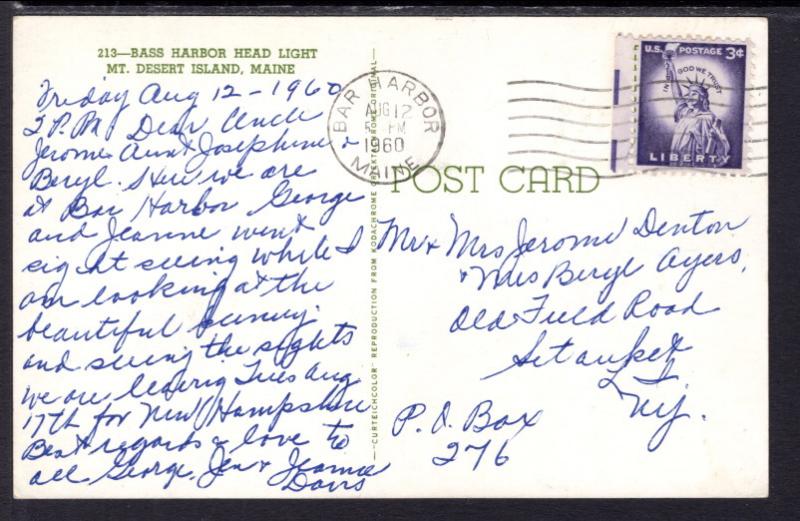 213—BASS HARBOR HEAD LIGHT
MT. DESERT ISLAND, MAINE
Friday Aug 12 - 1960
2 P.M. Dear Uncle
Jerome Aunt Josephine &
Beryl. Here we are
at Bar Harbor George
and Jeanne went
sight seeing while I
am looking at the
beautiful scenery
and seeing the sights
we are leaving Tues Aug
17th for New Hampshire
Best regards & love to
all George, Jen & Jeanne
Davis
"CURTEICHCOLOR" REPRODUCTION FROM KODACHROME OR EKTACHROME ORIGINAL
BAR HARBOR
AUG 12
PM
1960
MAINE
U.S. POSTAGE 3¢
IN GOD WE TRUST
LIBERTY
POST CARD
Mr & Mrs Jerome Denton
& Mrs Beryl Ayers,
Old Field Road
Setauket
L.I.
N.Y.
P.O. Box
276